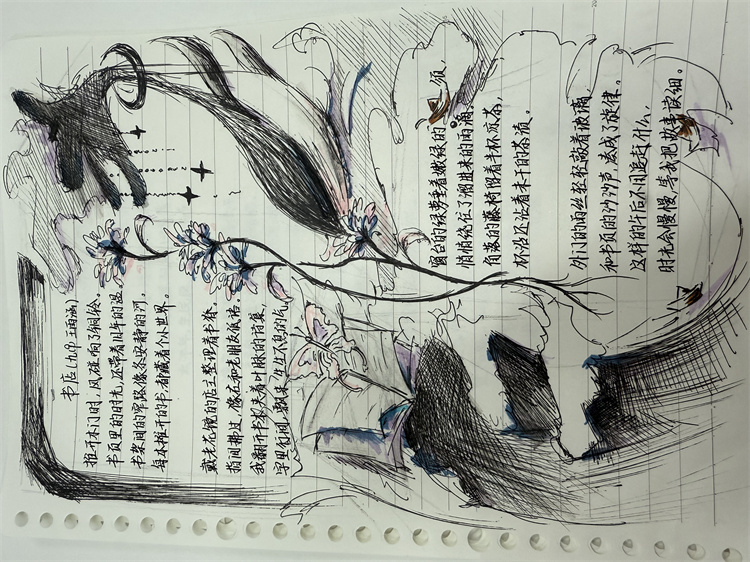 书店(九(1) 王雨涵)
推开木门时,风碰响了铜铃,
书页里的时光,还裹着旧年的温
书架间的窄路像条安静的河,
每本推开的书都藏着个小世界。
戴老花镜的店主整理着书脊,
指间拂过,像在和老朋友说话
我翻开书
字里行间
窗台的绿萝垂着嫩绿的
须,
悄悄绕住了溜进来的雨滴
角落的藤椅偎着半杯凉茶,
杯沿还沾着未干的茶渍。
外门的雨丝轻轻敲着玻璃,
和书页的沙沙声 合成了旋律。
这样的午后不用追赶什么,
时光会慢慢 等我把故事读细。